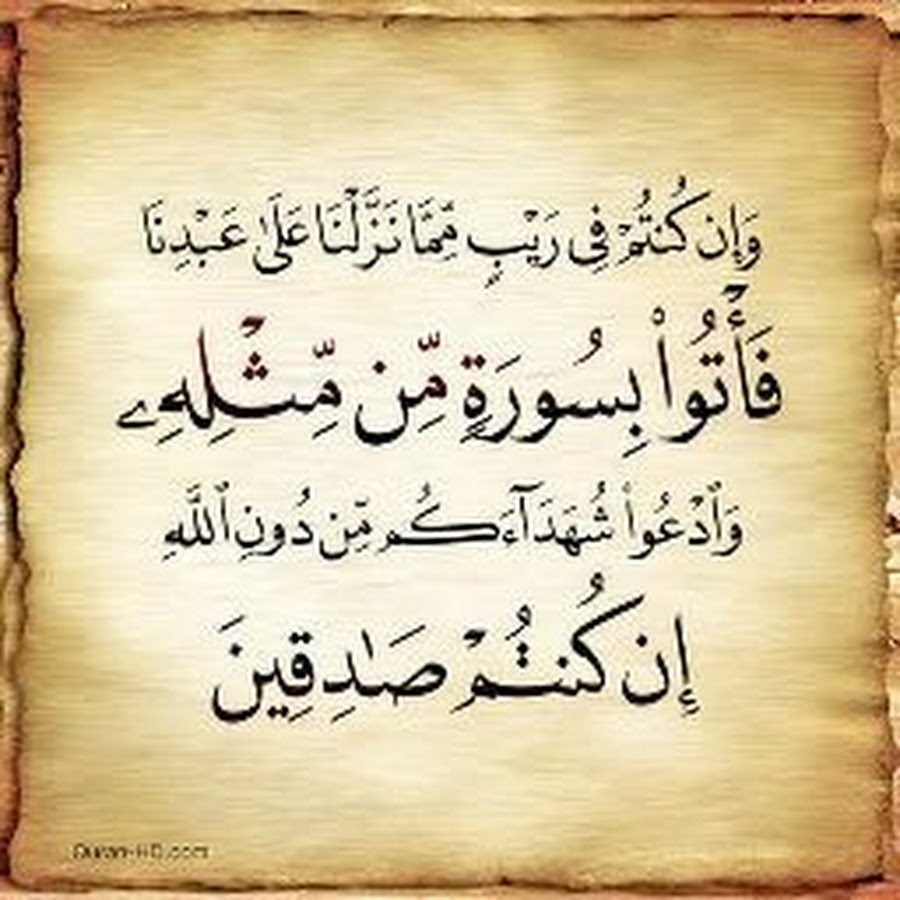 وَإِن كُنتُمْ فِى رَيْبٍ مِّمَّا نَزَّلْنَا عَلَىٰ عَبْدِنَا
فَأْتُوا۟ بِسُورَةٍ مِّن مِّثْلِهِۦ
وَٱدْعُوا۟ شُهَدَآءَكُم مِّن دُونِ ٱللَّهِ
إِن كُنتُمْ صَـٰدِقِينَ
Quran-HD.com